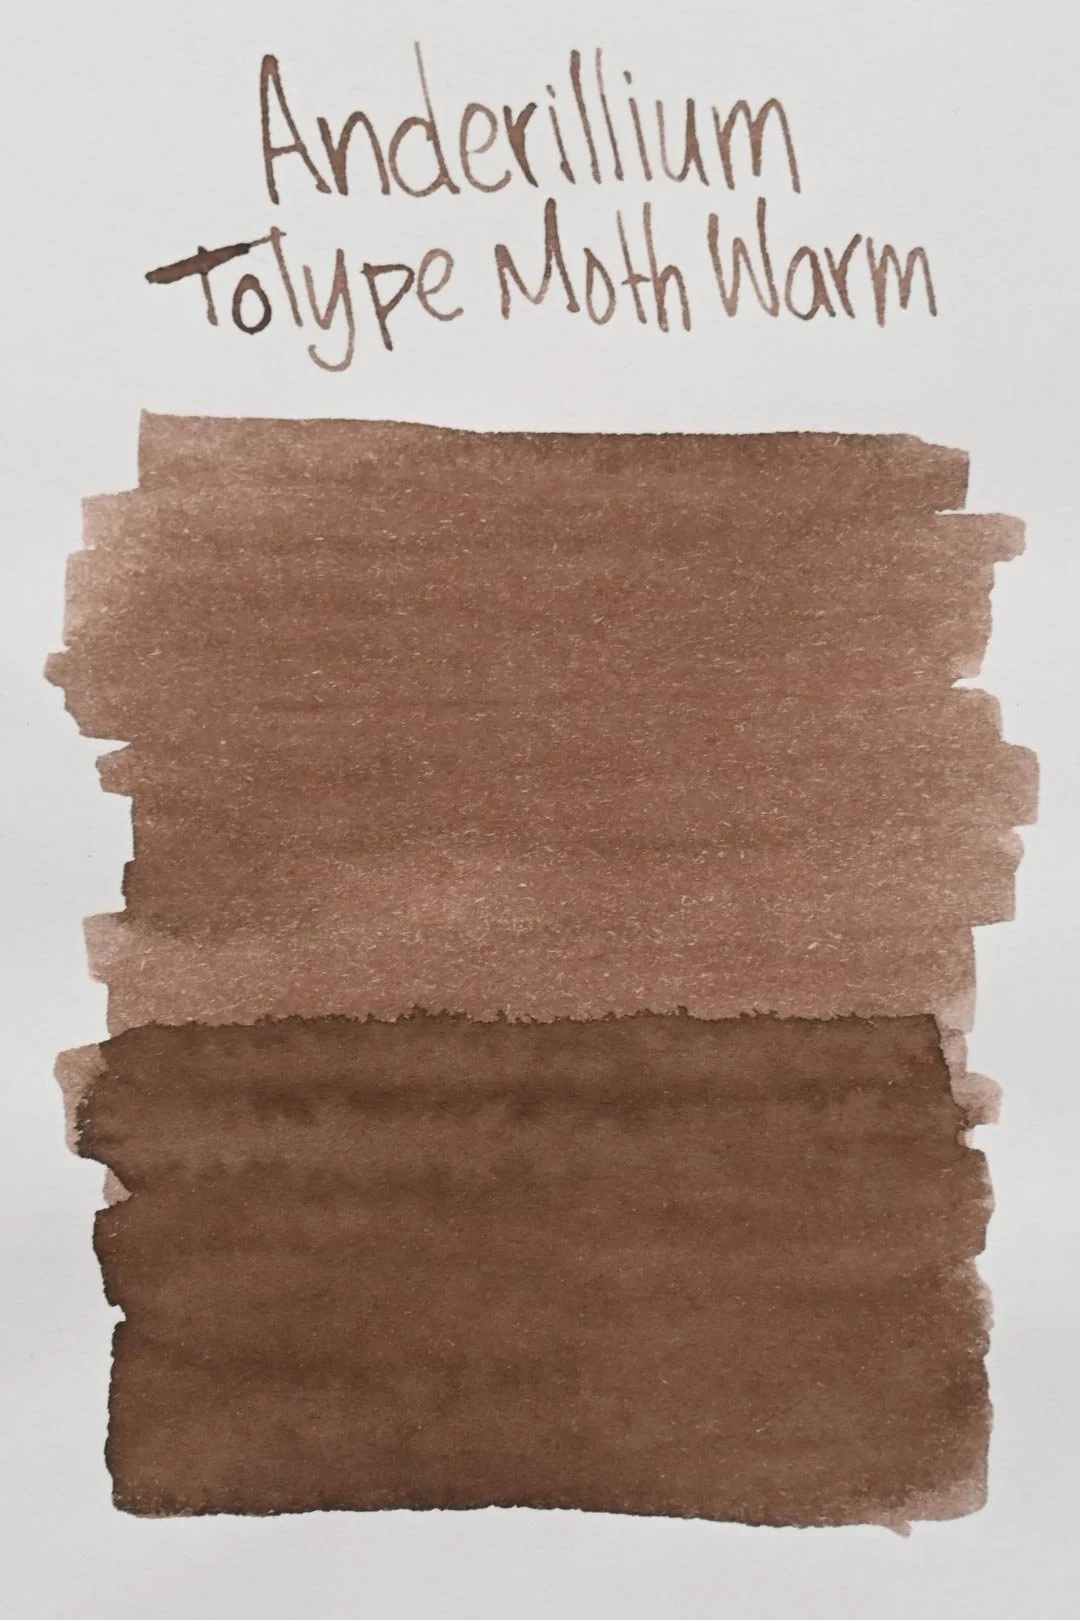 Anderillium
Tolype Moth Warm